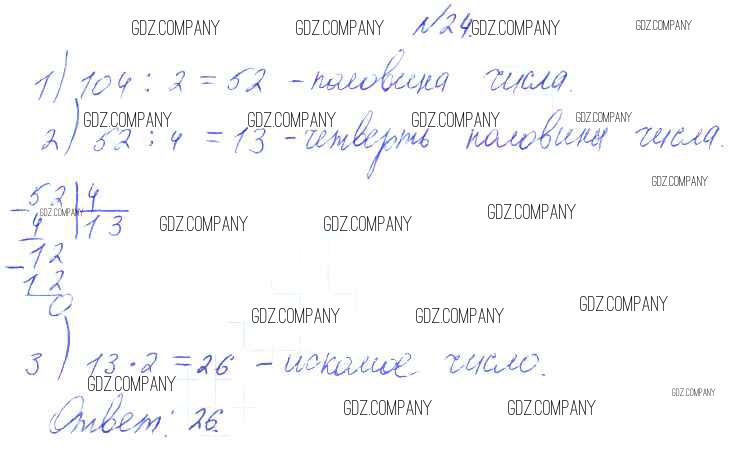 GDZ.COMPANY GDZ.COMPANY №24. GDZ.COMPANY GDZ.COMPANY
1) 104 : 2 = 52 - половина числа.
GDZ.COMPANY GDZ.COMPANY GDZ.COMPANY GDZ.COMPANY
2) 52 : 4 = 13 - четверть половины числа.
GDZ.COMPANY
- 52 | 4
GDZ.COMPANY GDZ.COMPANY GDZ.COMPANY GDZ.COMPANY
4 | 13
- 12
12
0
GDZ.COMPANY GDZ.COMPANY GDZ.COMPANY
3) 13 · 2 = 26 - искомое число.
GDZ.COMPANY GDZ.COMPANY GDZ.COMPANY GDZ.COMPANY
Ответ: 26.